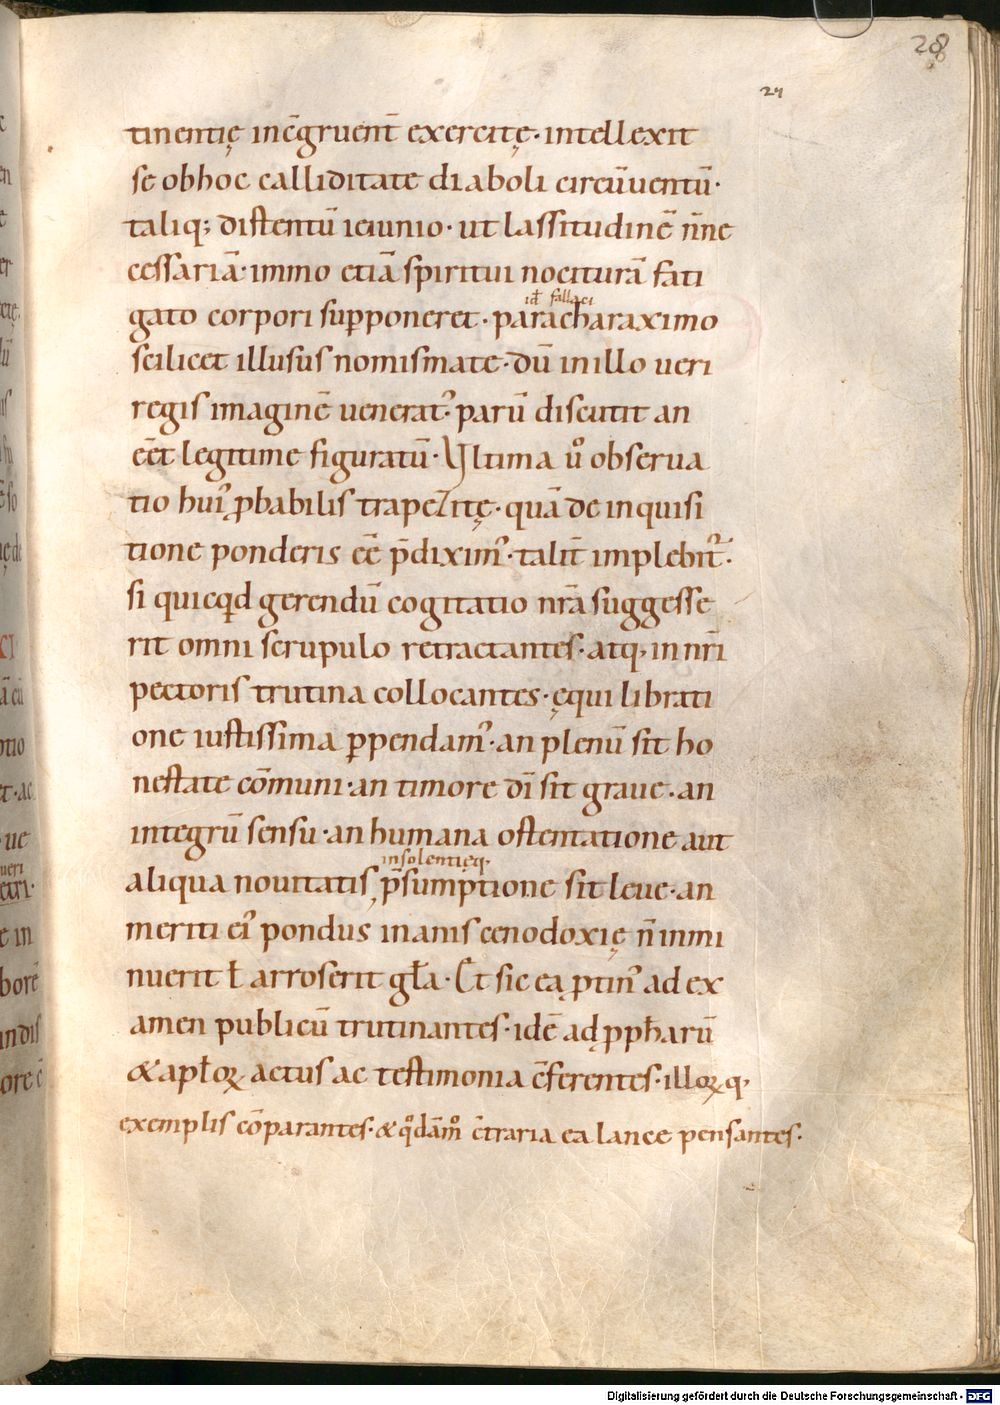 28
27
tinentię incͣgruent̄ exercitę· intellexit
se obhoc calliditate diaboli circūuentū·
taliq; distentū ieiunio· ut lassitudinē n̄ne
cessariā· immo etiā spiritui nociturā fati
id̄ fallaci
gato corpori supponeret· paracharaximo
scilicet illusus nomismate· dū inillo ueri
regis imaginē ueneratᷣ· parū discutit an
eēt legitime figuratū· Vltima u͛o obserua
tio huiꝰ ꝓbabilis trapezitę· quā de inquisi
tione ponderis eē p̄diximꝰ· talit̄ implebitᷣ·
si quicqͥd gerendū cogitatio nr̄a suggesse
rit omni scrupulo retractantes· atq; in nr̄i
pectoris trutina collocantes· ęqui librati
one iustissima ꝑpendamꝰ· an plenū sit ho
nestate cōmuni· an timore dī sit graue· an
integrū sensu· an humana ostentatione aut
insolentięq;
aliqua nouitatis, p̄sumptione sit leue· an
meriti eiꝰ pondus inanis cenodoxię n̄ inmi
nuerit ł arroserit gła· Et sic ea ꝓtinꝰ ad ex
amen publicū trutinantes· idē ad ꝓph̄arū
& apłoꝝ actus ac testimonia c̄ferentes· illoꝝq;
exemplis cōparantes· & qͦdāmͦ c̄traria ea lance pensantes·
Digitalisierung gefördert durch die Deutsche Forschungsgemeinschaft - DFG